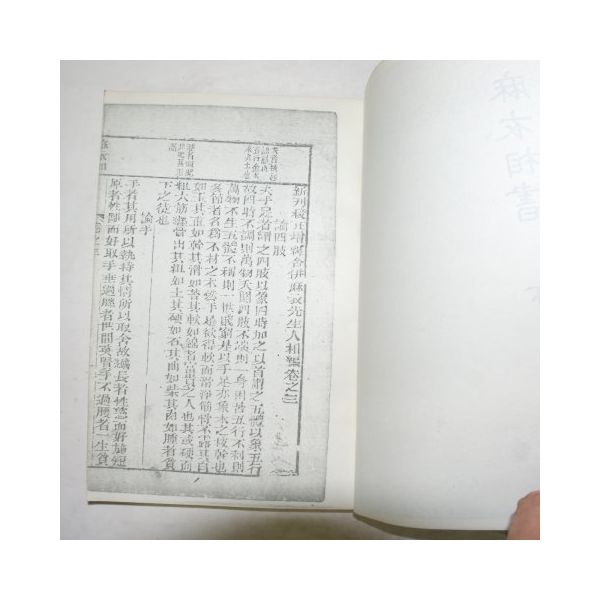 麻衣相書
新刊校正增釋合併麻衣先生人相編卷之三
論四肢
夫手足者謂之四肢以象四時加之以首謂之五體以象五行
故四時不調則萬物夭閼四肢不端則一身困苦五行不利則
萬物不生五體不利則一世貧窮是以手足亦象木之枝幹也
多節者名爲不材之木
然手足欲得軟而滑淨筋不露其白
如玉其直如幹其滑如苔其軟如綿者富貴之人也其或硬而
粗大筋纏骨出其粗如土其硬如石其曲如柴其肉如腫者貧
下之徒也
論手
手者其用所以執持其情所以取舍故纖長者性慈而好施短
厚者性鄙而好取手垂過膝者世間英賢手不過腰者一生貧